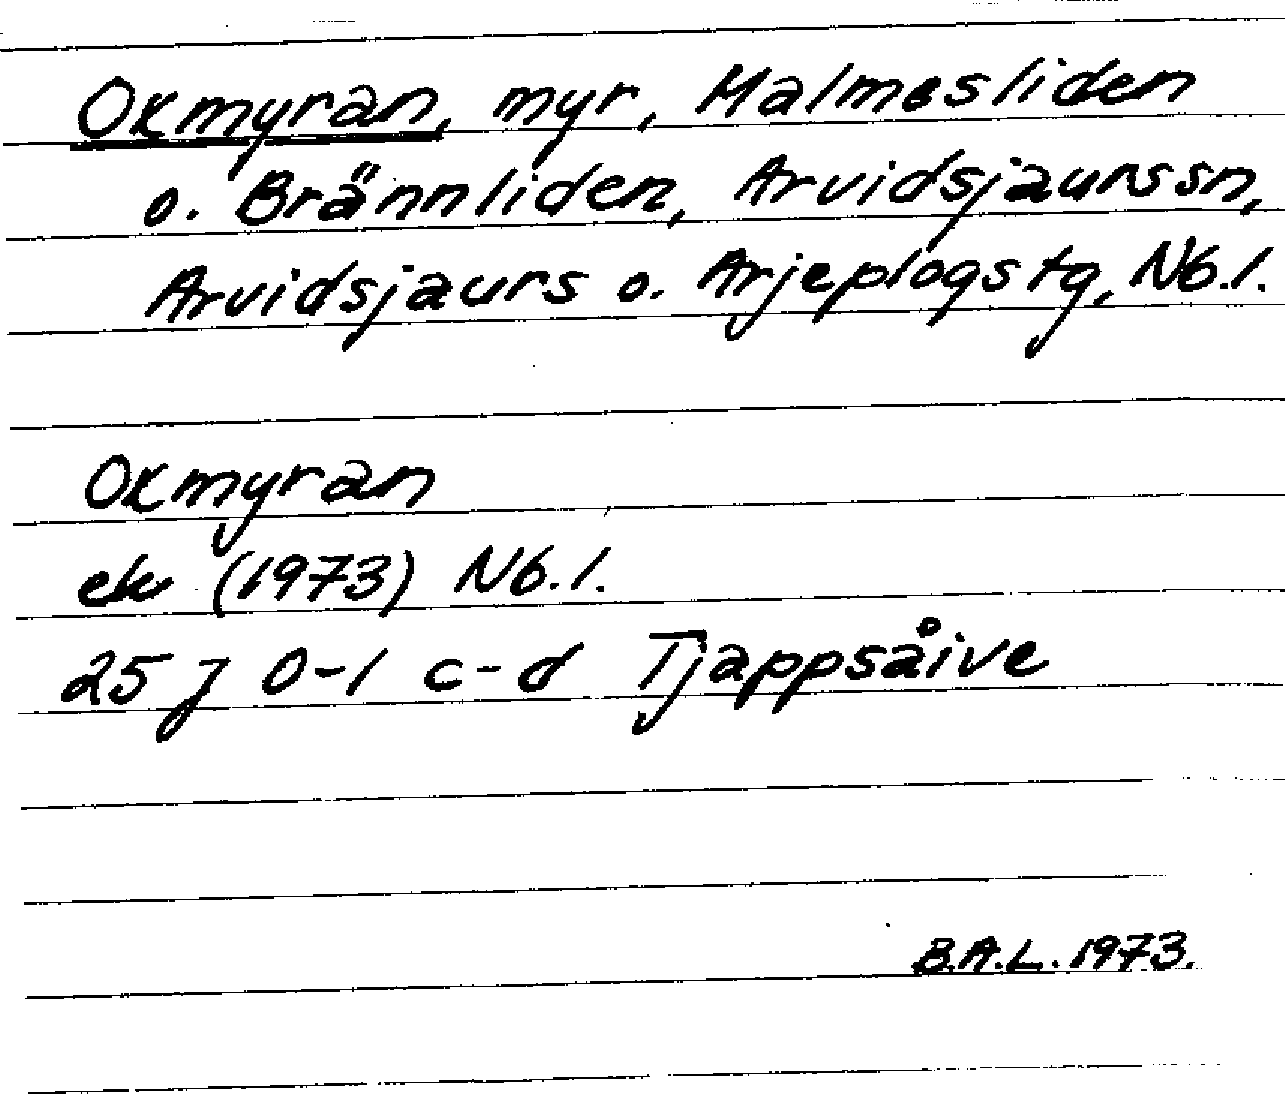 Oxmyran, myr, Malmesliden
o. Brännliden, Arvidsjaurssn,
Arvidsjaurs o. Arjeplogs tg, Nb.l.
Oxmyran
ek (1973) Nb.l.
25 J 0-1 c-d Tjappsåive
B.A.L. 1973.